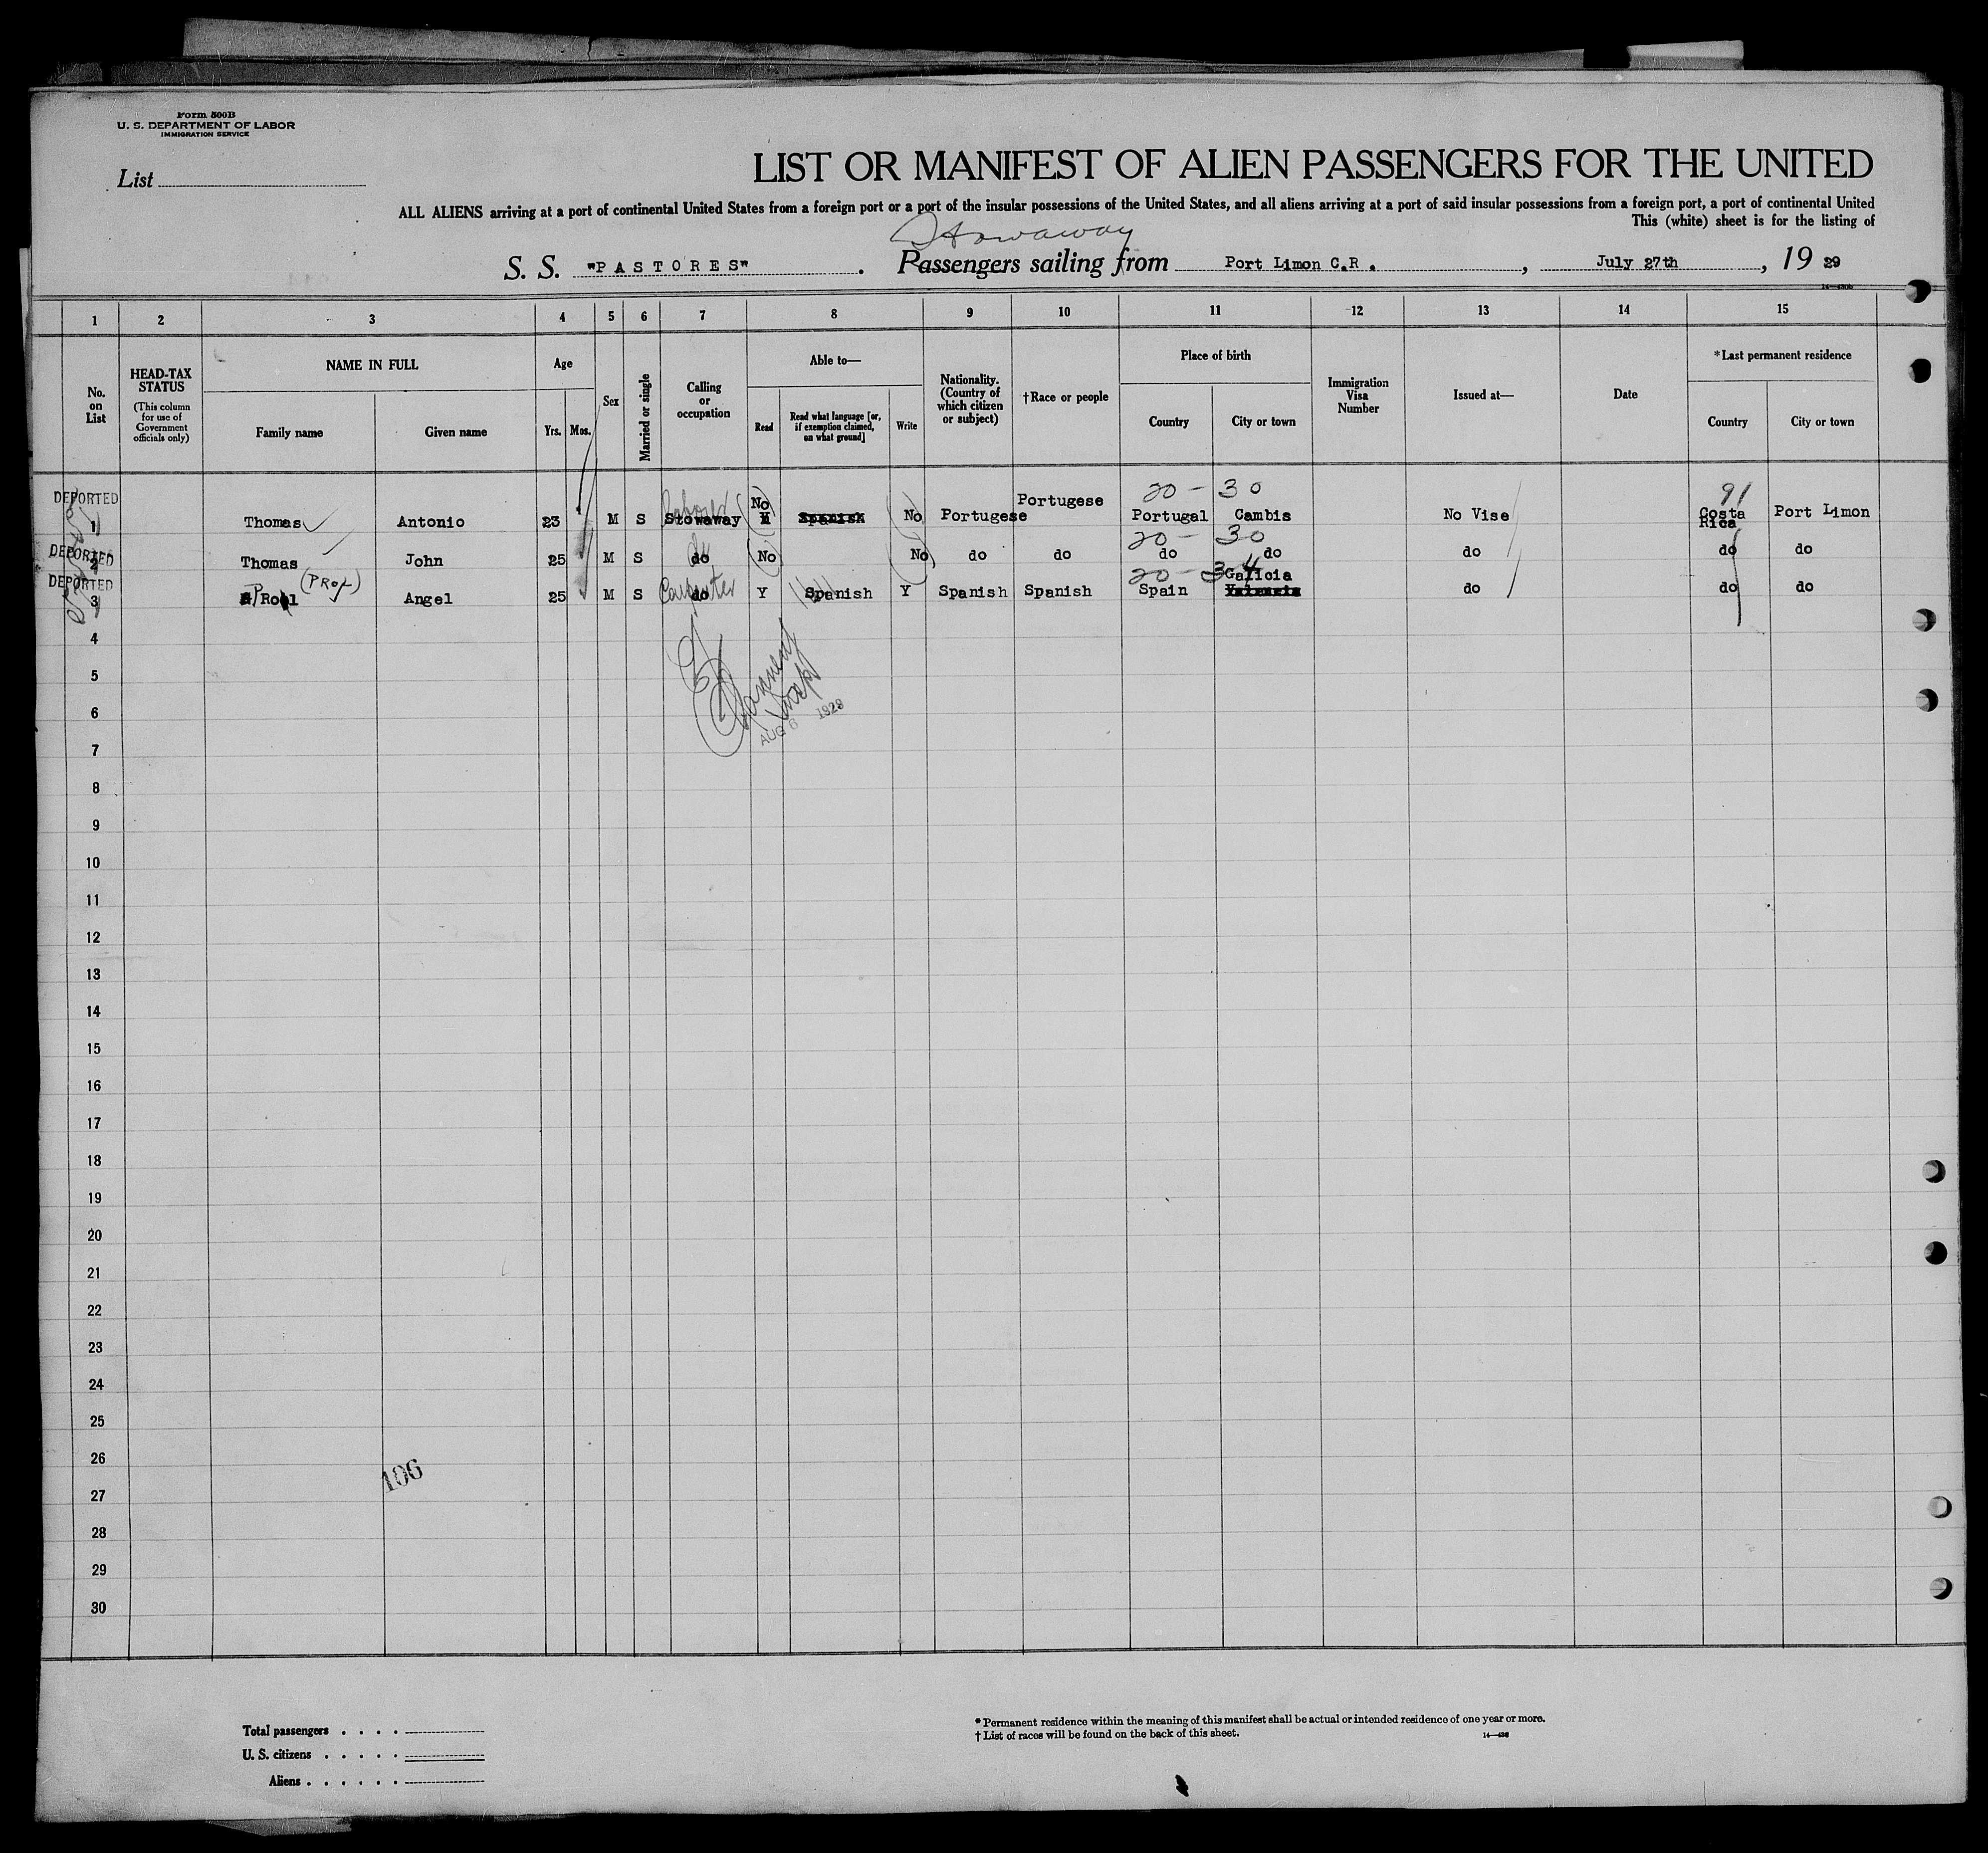 Form 500B
U. S. DEPARTMENT OF LABOR
IMMIGRATION SERVICE
List
LIST OR MANIFEST OF ALIEN PASSENGERS FOR THE UNITED
ALL ALIENS arriving at a port of continental United States from a foreign port or a port of the insular possessions of the United States, and all aliens arriving at a port of said insular possessions from a foreign port, a port of continental United
This (white) sheet is for the listing of
Stowaway
S. S. "PASTORES" . Passengers sailing from Port Limon C.R. , July 27th , 19 29
1 2 3 4 5 6 7 8 9 10 11 12 13 14 15
No. on List
HEAD-TAX STATUS
(This column for use of Government officials only)
NAME IN FULL
Family name Given name
Age
Yrs. Mos.
Sex
Married or single
Calling or occupation
Able to—
Read
Read what language [or, if exemption claimed, on what ground]
Write
Nationality. (Country of which citizen or subject)
†Race or people
Place of birth
Country City or town
Immigration Visa Number
Issued at—
Date
*Last permanent residence
Country City or town
DEPORTED 1 Thomas Antonio 23 M S Stowaway No Spanish No Portugese Portugese 20 - 30 Portugal Cambis No Vise 91 Costa Rica Port Limon
DEPORTED 2 Thomas John 25 M S do No No do do 20 - 30 do do do do do
DEPORTED 3 (PROL) Angel 25 M S Carpenter do Y Spanish Y Spanish Spanish 20 - 34 Spain Galicia do do do
4
5
6
AUG 6 1929
7
8
9
10
11
12
13
14
15
16
17
18
19
20
21
22
23
24
25
26
106
27
28
29
30
Total passengers . . . .
U. S. citizens . . . . .
Aliens . . . . . .
* Permanent residence within the meaning of this manifest shall be actual or intended residence of one year or more.
† List of races will be found on the back of this sheet.